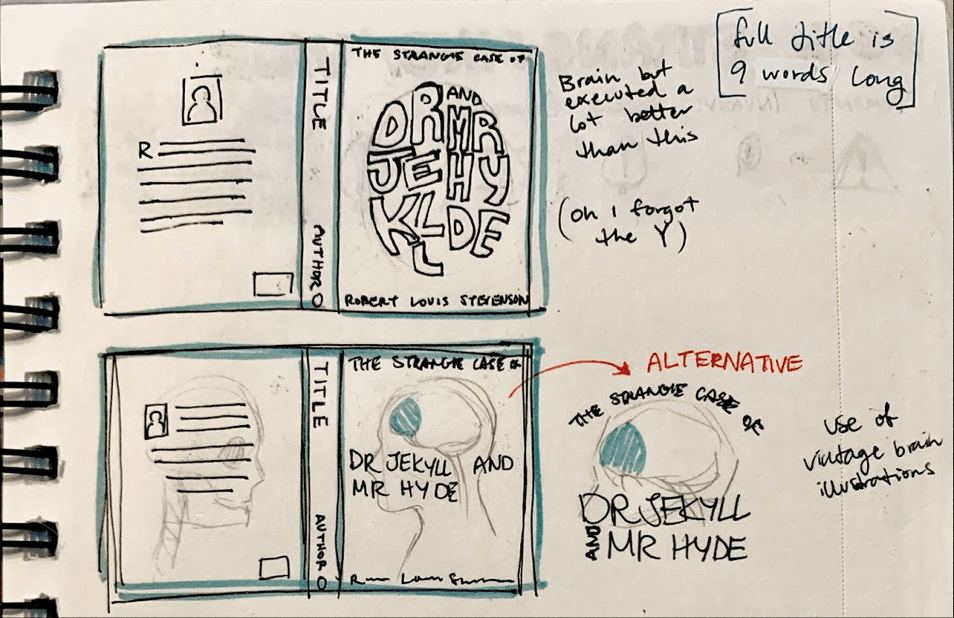 [full title is
9 words long]
THE STRANGE CASE OF
DR AND
MR
JE HY
KL DE
L
ROBERT LOUIS STEVENSON
TITLE
AUTHOR
R
Brain but
executed a
lot better
than this
(oh I forgot
the Y)
THE STRANGE CASE OF
DR JEKYLL AND
MR HYDE
TITLE
AUTHOR
ALTERNATIVE
THE STRANGE CASE OF
DR JEKYLL
AND MR HYDE
use of
vintage brain
illustrations